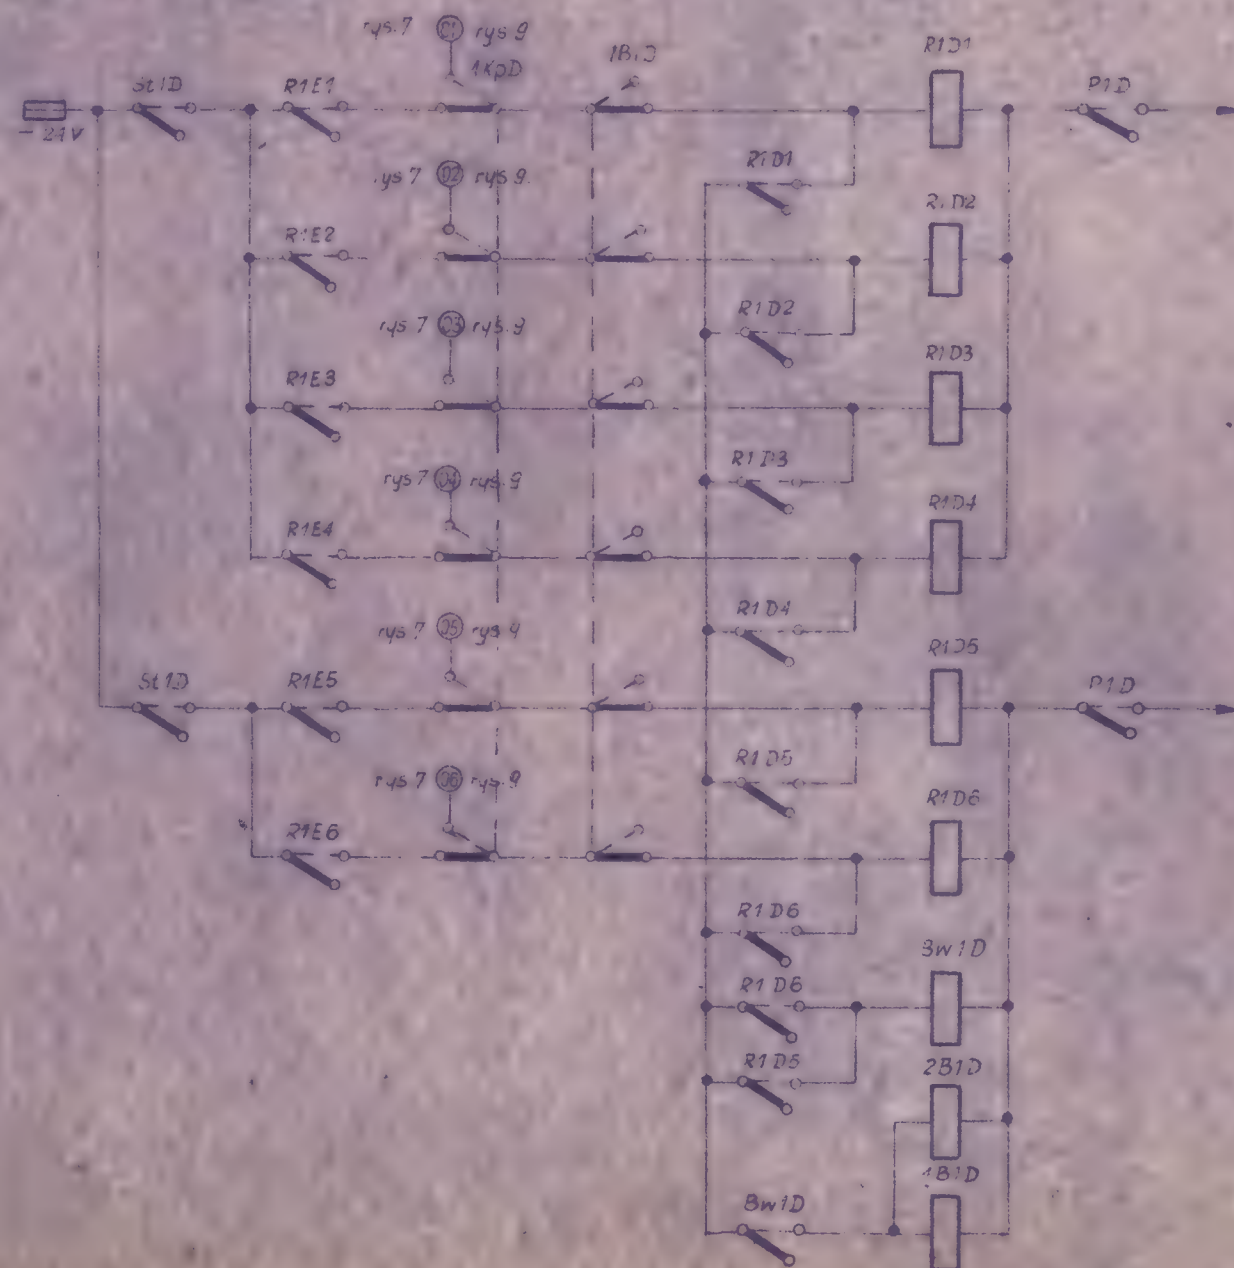 rys.7 01 rys 9
1KpD
1B1D
R1D1
St1D
R1E1
P1D
- 24V
R1D1
ys 7 02 rys 9.
R1D2
R1E2
R1D2
rys 7 03 rys.9
R1D3
R1E3
R1D3
rys 7 04 rys.9
R1D4
R1E4
R1D4
rys 7 05 rys
R1D5
St1D
R1E5
P1D
R1D5
rys 7 06 rys.9
R1D6
R1E6
R1D6
Bw1D
R1D6
R1D5
2B1D
1B1D
Bw1D